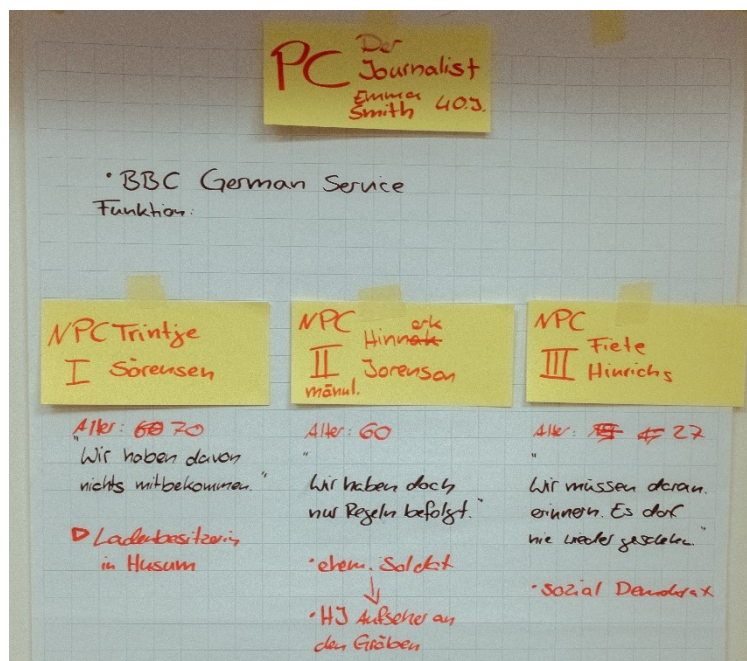 PC Der
Journalist
Emma
Smith 40.J.
• BBC German Service
Funktion:
NPC Trintje
I Sörensen
Alter: 60 70
"Wir haben davon
nichts mitbekommen."
▷ Ladenbesitzerin
in Husum
NPC Hinnak erk
II Jorenson
männl.
Alter: 60
"
Wir haben doch
nur Regeln befolgt."
• ehem. Soldat
↓
• HJ Aufseher an
den Gräben
NPC
III Fiete
Hinrichs
Alter: 27
"
Wir müssen daran
erinnern. Es darf
nie wieder geschehen."
• Sozial Demokrat